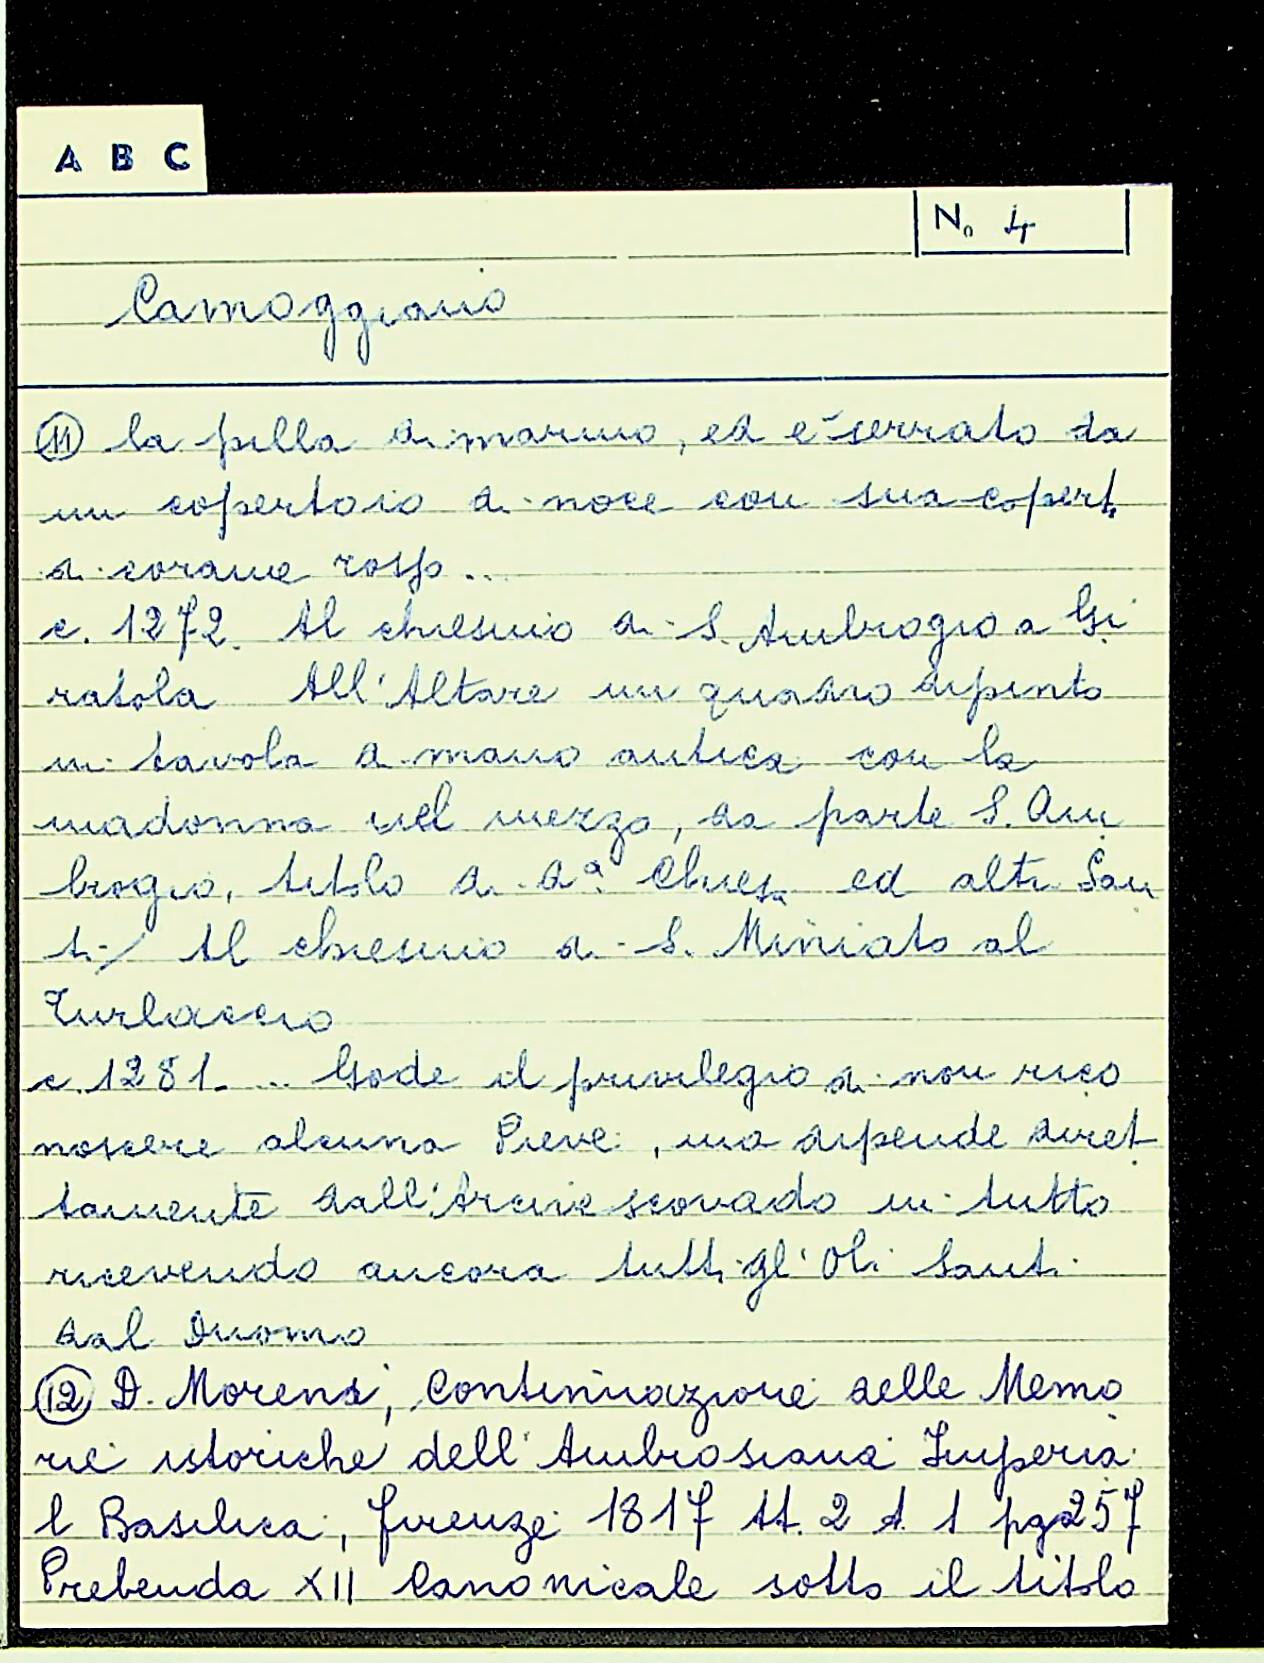 A B C
No 4
Camoggiano
(11) la pilla di marmo, ed è serrato da
un copertoio di noce con sua copert.
di corame rosso..
c. 1272. Al chiesino di S. Ambrogio a Gi
ratola All'Altare un quadro dipinto
in tavola di mano antica con la
madonna nel mezzo, da parte S. Am
brogio, titolo di da. Chiesa ed altri San
ti / Al chiesino di S. Miniato al
Turlaccio
c. 1281. ... Gode il privilegio di non rico
noscere alcuna Pieve, ma dipende diret
tamente dall'Arcivescovado in tutto
ricevendo ancora tutti gl'Oli Santi
dal Duomo
(12) D. Moreni, Continuazione delle Memo
rie istoriche dell'Ambrosiana Imperia
l Basilica, Firenze 1817 tt. 2 t. 1 pg 257
Prebenda XII Canonicale sotto il titolo